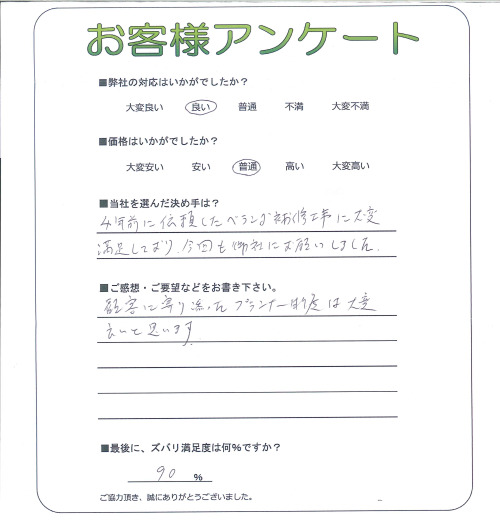 お客様アンケート
■弊社の対応はいかがでしたか？
大変良い 良い 普通 不満 大変不満
■価格はいかがでしたか？
大変安い 安い 普通 高い 大変高い
■当社を選んだ決め手は？
4年前に依頼したベランダ補修工事に大変
満足しており、今回も御社にお願いしました。
■ご感想・ご要望などをお書き下さい。
顧客に寄り添ったプランナー制度は大変
良いと思います
■最後に、ズバリ満足度は何%ですか？
90 %
ご協力頂き、誠にありがとうございました。